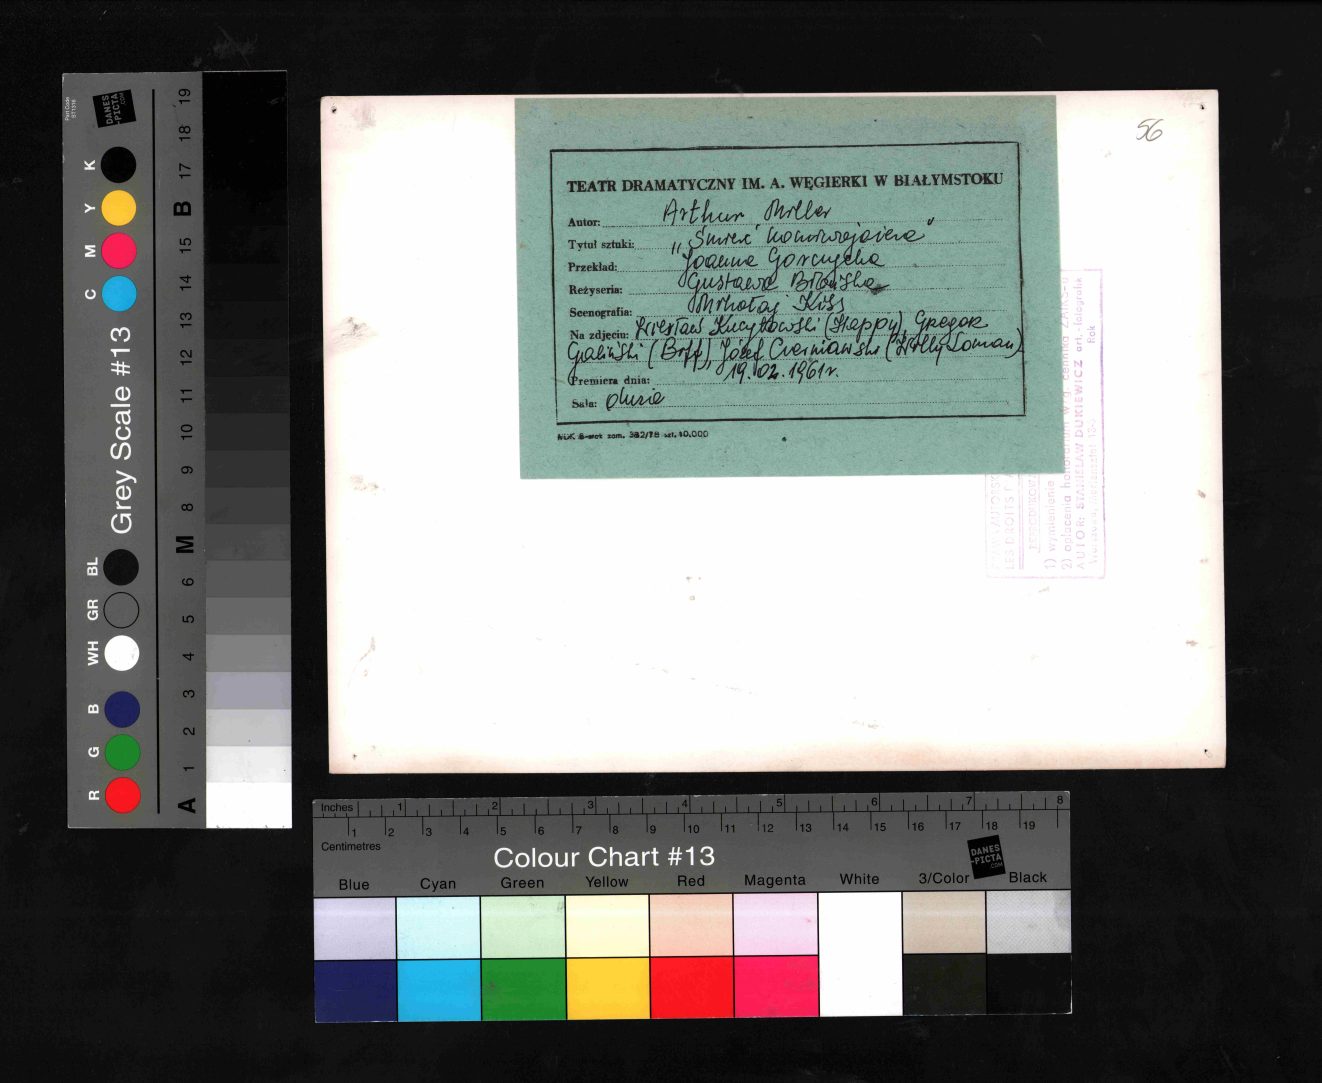 56
TEATR DRAMATYCZNY IM. A. WĘGIERKI W BIAŁYMSTOKU
Autor: Arthur Miller
Tytuł sztuki: „Śmierć komiwojażera"
Przekład: Joanna Gorczycka
Reżyseria: Gustawa Błońska
Scenografia: Mikołaj Kiss
Na zdjęciu: Krucytowski (Happy), Gregor
Galiński (Biff), Józef Czerniawski (Willy Loman)
Premiera dnia: 19.02.1961r.
Sala: duża
zam. 382/78 szt. 10.000
LES DROITS
1) wymienienia
2) opłacenia
AUTOR: STANISŁAW DUKIEWICZ art.-fotografik
Rok
Part Code
ST1316
DANES
-PICTA
.COM
Grey Scale #13
K Y M C
BL GR WH
B G R
19 18 17 B 15 14 13 12 11 10 9 8 M 6 5 4 3 2 1 A
Inches 1 2 3 4 5 6 7 8
1 2 3 4 5 6 7 8 9 10 11 12 13 14 15 16 17 18 19
Centimetres
Colour Chart #13
DANES
-PICTA
.COM
Blue Cyan Green Yellow Red Magenta White 3/Color Black